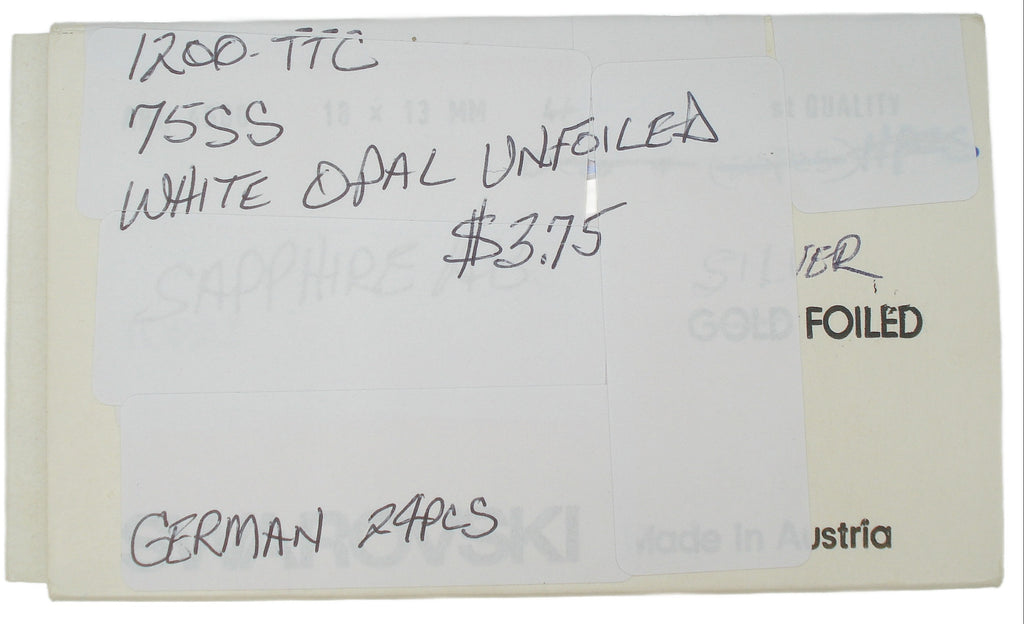 1200-TTC
75SS
18 x 13 MM
st QUALITY
WHITE OPAL UNFOILED
$3.75
SAPPHIRE
SILVER
GOLD FOILED
GERMAN 24PCS
SWAROVSKI
Made in Austria